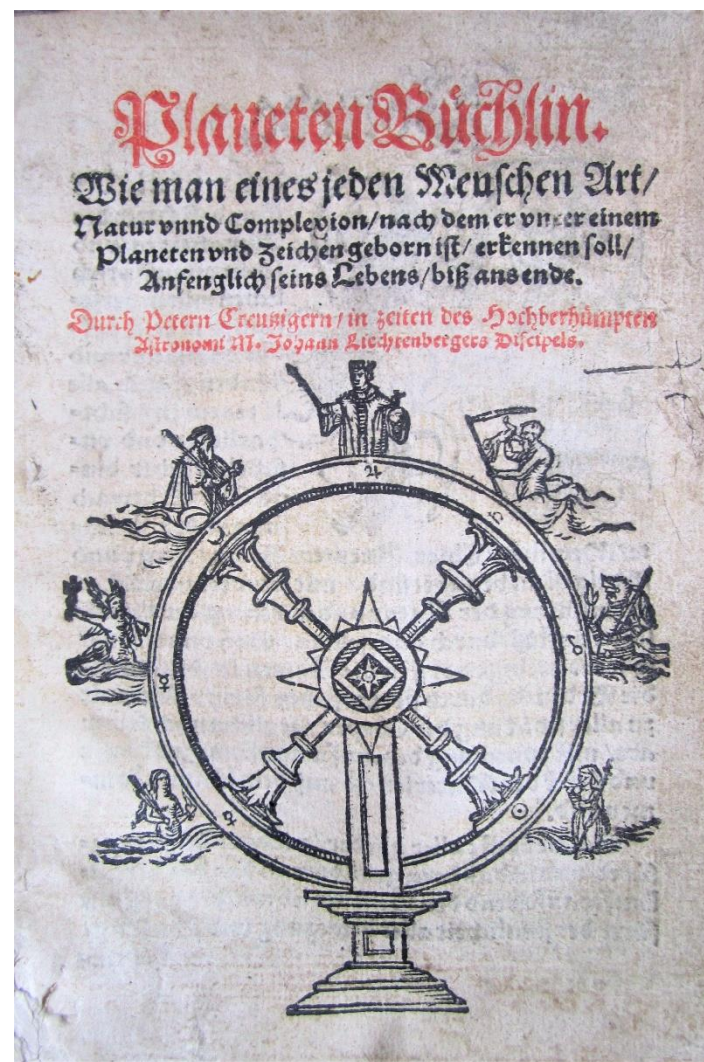 Planeten Büchlin.
Wie man eines jeden Menschen Art/
Natur vnnd Complexion/nach dem er vnter einem
Planeten vnd Zeichen geborn ist/ erkennen soll/
Anfenglich seins Lebens/biß ans ende.
Durch Petern Creutzigern/in zeiten des Hochberhümpten
Astronomi M. Johann Liechtenbergers Discipels.
♃
☾ ♄
☿ ♂
♀ ☉